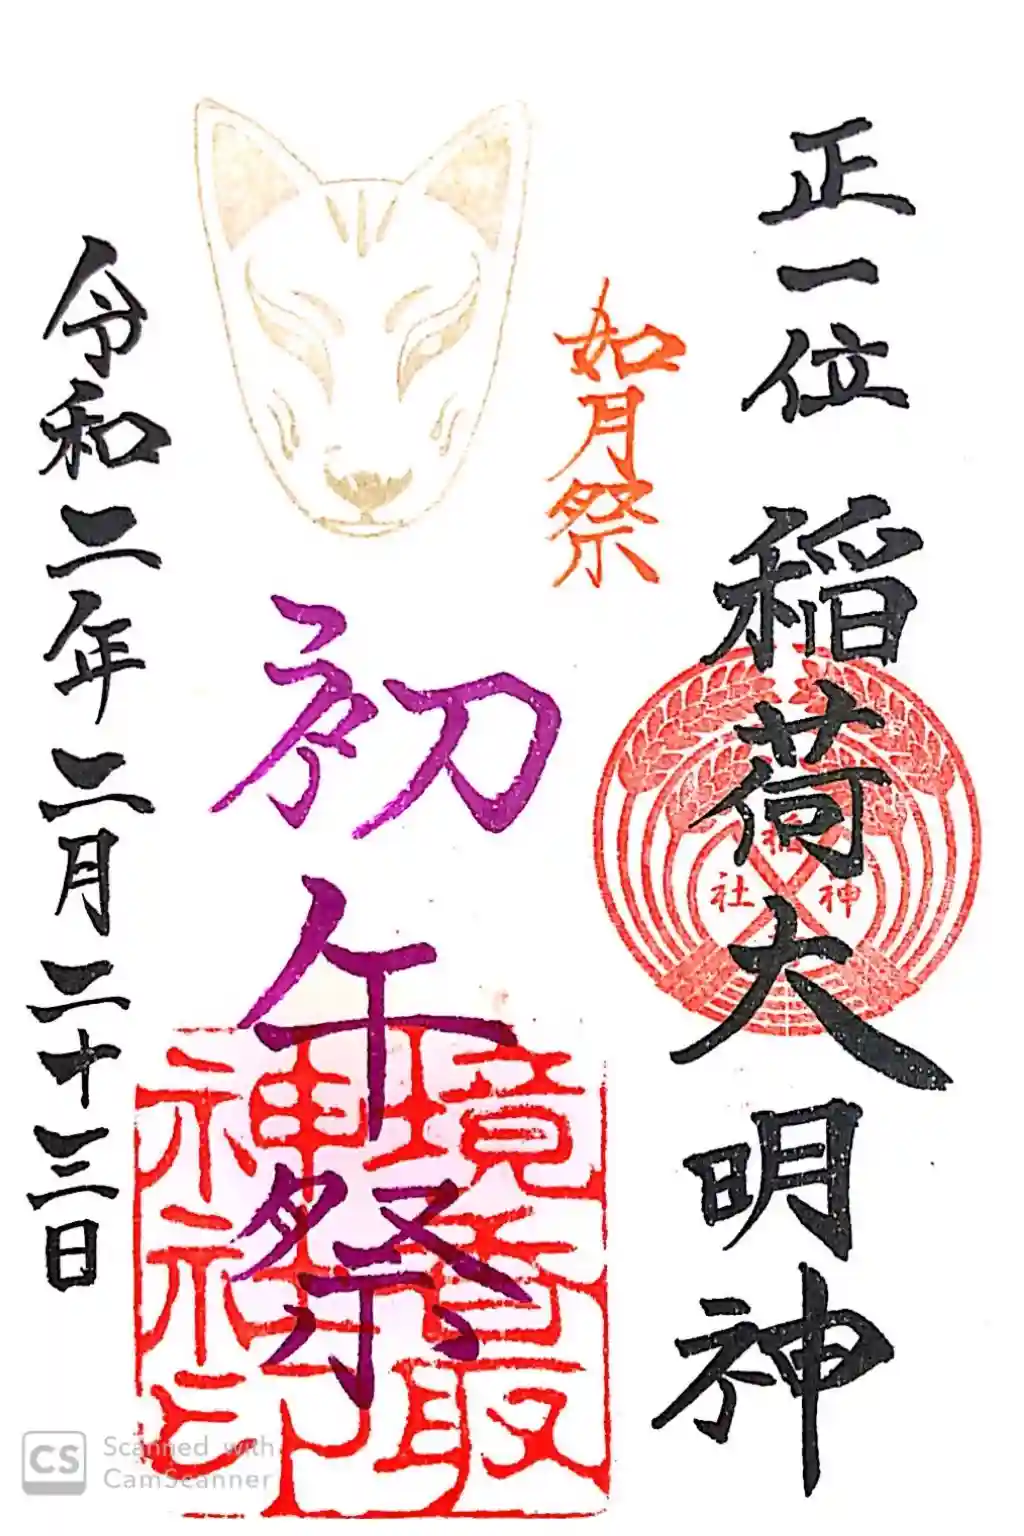 正一位 稲荷大明神
稲
神
社
如月祭
初午祭
境香取
神社印
令和二年二月二十三日
CS Scanned with
CamScanner